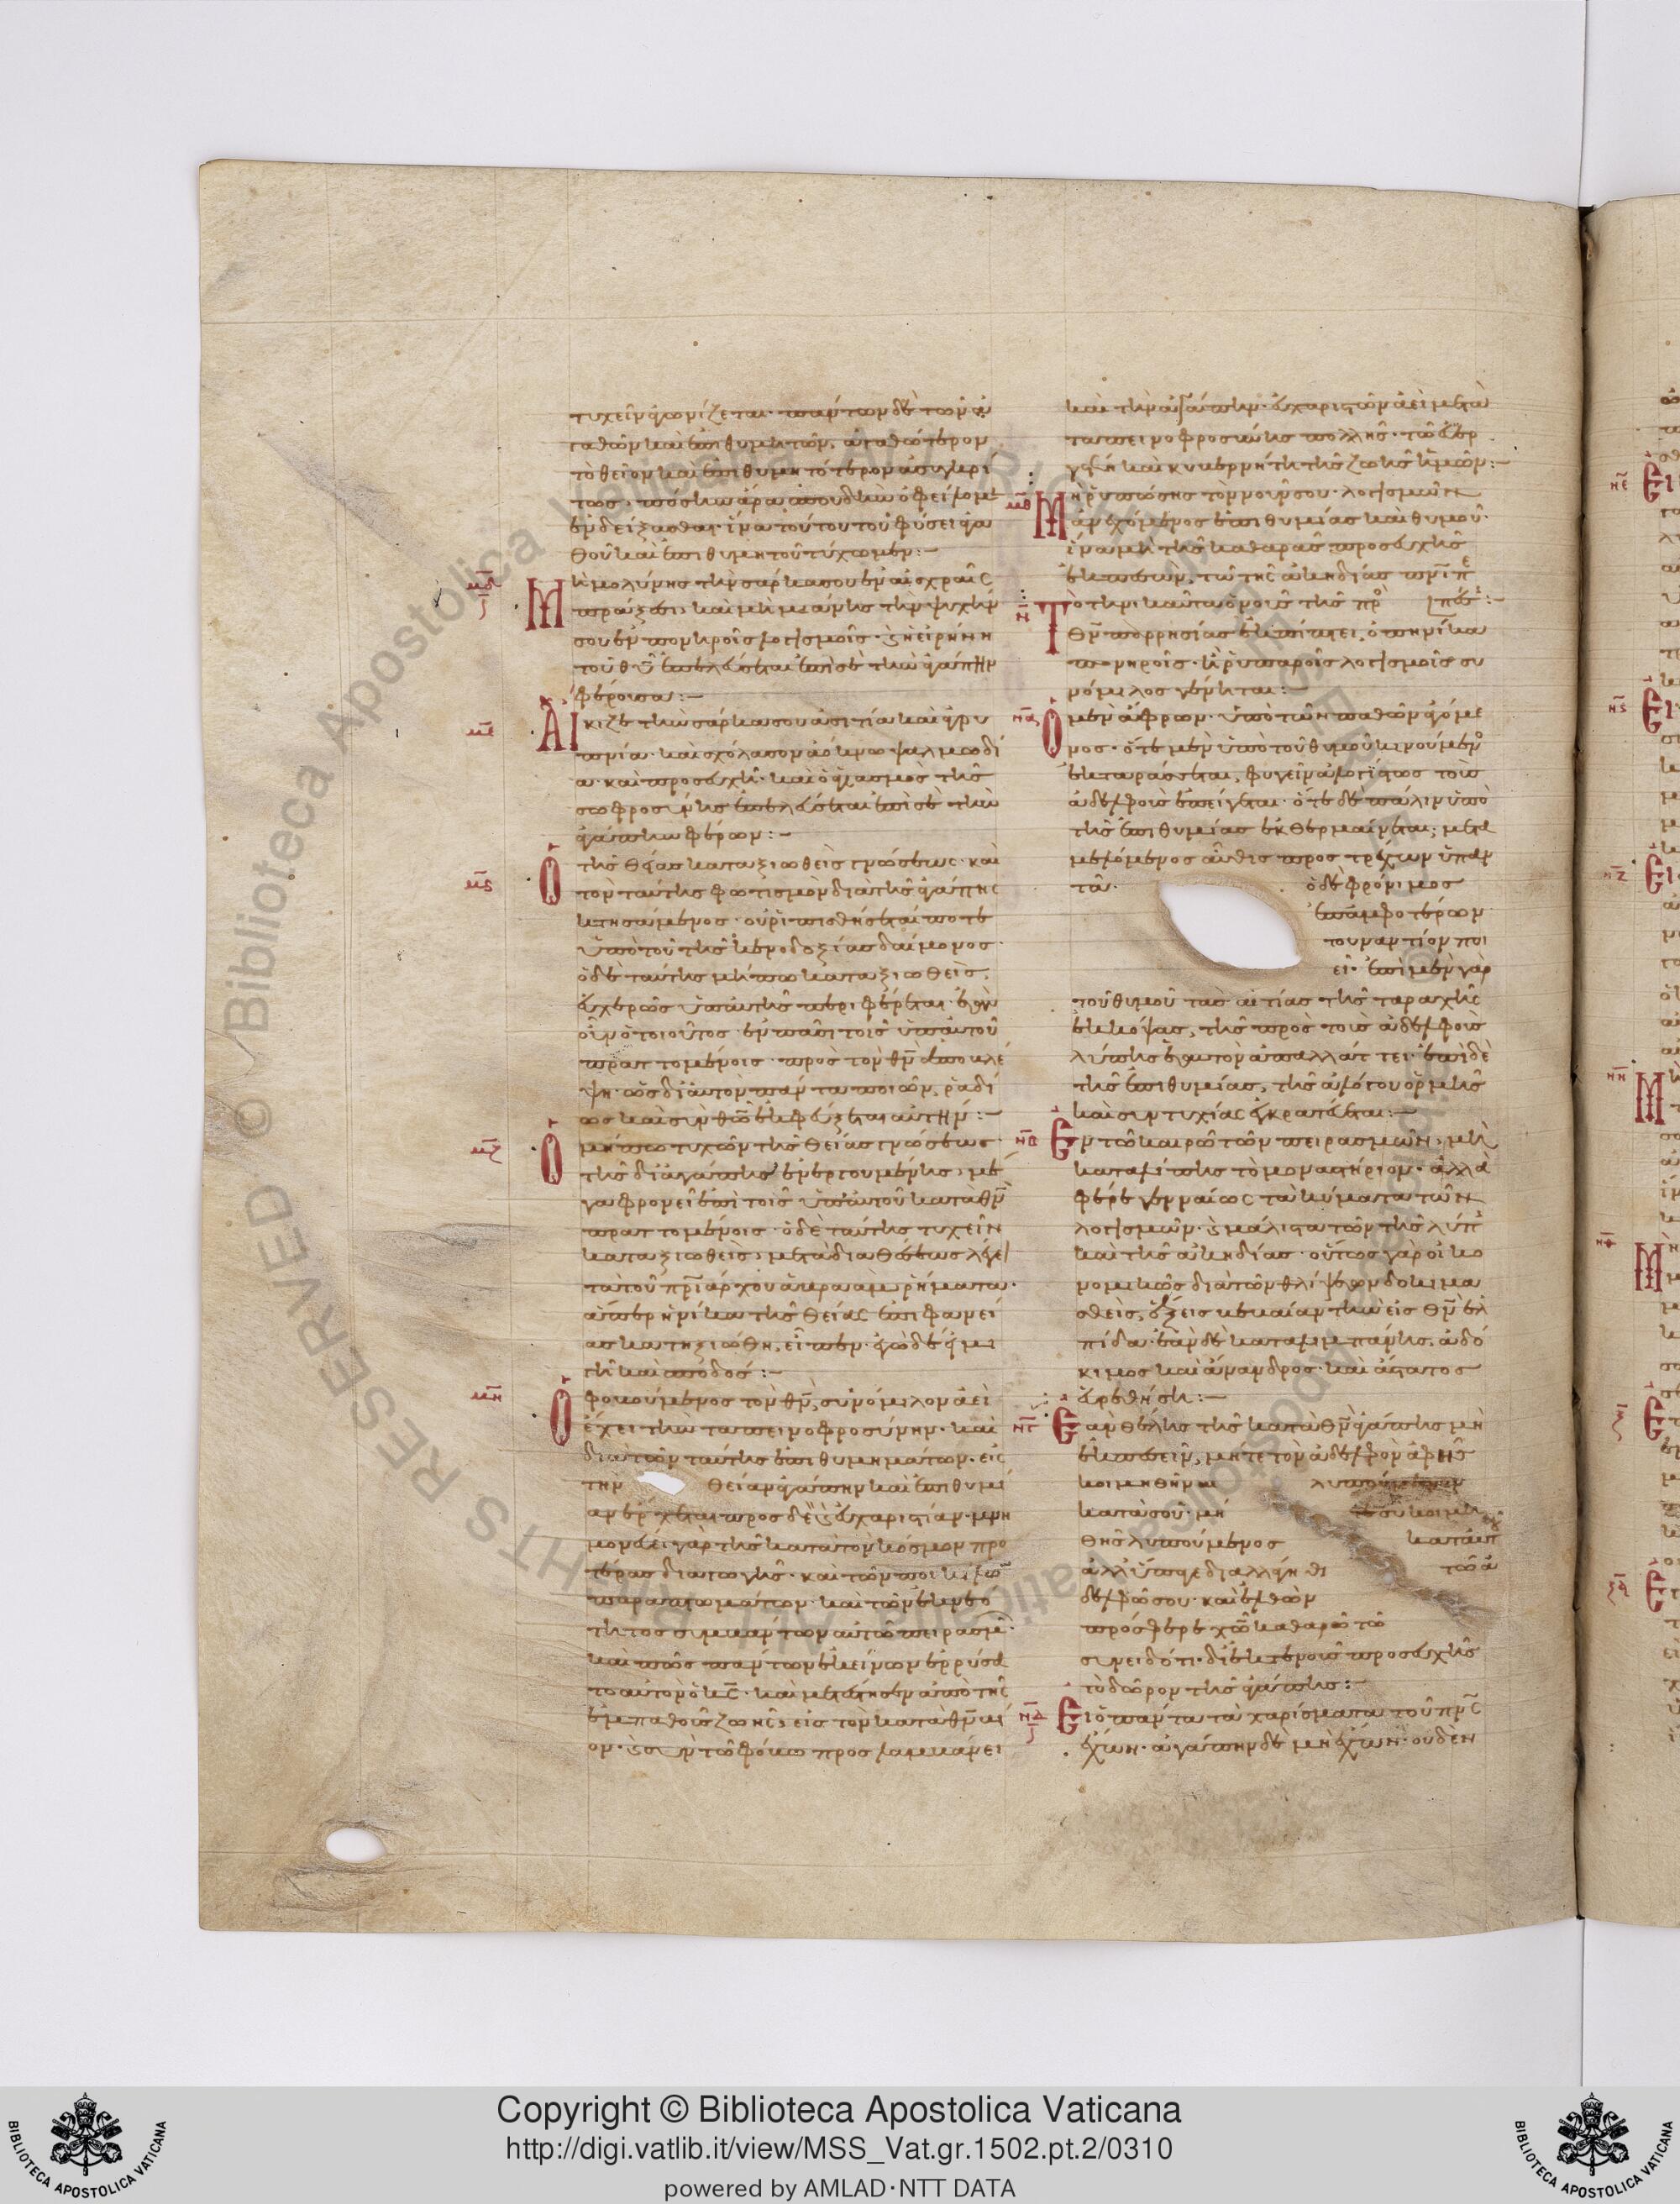 τυχεῖν ἀγωνίζεται· πάντων δὲ τῶν ἀ
γαθῶν καὶ ἐπιθυμητῶν, ἀγαθώτερον
τὸ θεῖον καὶ ἐπιθυμητότερον ἀσυγκρί
τως· πόσην ἄρα σπουδὴν ὀφείλομεν
ἐνδείξασθαι· ἵνα τούτου τοῦ φύσει ἀγα
θοῦ καὶ ἐπιθυμητοῦ τύχωμεν:–
μδ Μὴ μολύνῃς τὴν σάρκα σου ἐν αἰσχραῖς
πράξεσι, καὶ μὴ μιάνῃς τὴν ψυχήν
σου ἐν πονηροῖς λογισμοῖς· ϗ ἡ εἰρήνη
τοῦ θυ ἐπελεύσεται ἐπὶ σὲ τὴν ἀγάπην
φέρουσα:–
με Αἴκιζε τὴν σάρκα σου ἀσιτίᾳ καὶ ἀγρυ
πνίᾳ· καὶ σχόλασον ἀόκνως ψαλμωδί
α· καὶ προσευχῇ· καὶ ὁ ἁγιασμὸς τῆς
σωφροσύνης ἐπελεύσεται ἐπὶ σὲ τὴν
ἀγάπην φέρων:–
μς Ὁ τῆς θείας καταξιωθεὶς γνώσεως· καὶ
τὸν ταύτης φωτισμὸν διὰ τῆς ἀγάπης
κτησάμενος· οὐ ῥιπισθήσεταί ποτε
ὑπὸ τοῦ τῆς κενοδοξίας δαίμονος·
ὁ δὲ ταύτης μήπω καταξιωθεὶς,
εὐχερῶς ὑπ' αὐτῆς περιφέρεται· ἐὰν
οὖν ὁ τοιοῦτος ἐν πᾶσι τοῖς ὑπ' αὐτοῦ
πραττομένοις πρὸς τὸν θν ἀποβλέ
ψῃ· ὡς δι' αὐτὸν πάντα ποιῶν, ῥᾳδί
ως καὶ σὺν θῶ ἐκφεύξεται αὐτήν:–
μζ Ὁ μήπω τυχὼν τῆς θείας γνώσεως·
τῆς δι' ἀγάπης ἐνεργουμένης, μέ
γα φρονεῖ ἐπὶ τοῖς ὑπ' αὐτοῦ κατὰ θν
πραττομένοις· ὁ δὲ ταύτης τυχεῖν
καταξιωθεὶς, μετὰ διαθέσεως λέγει
τὰ τοῦ πριάρχου ἀβραὰμ ῥήματα·
ἅπερ ἡνίκα τῆς θείας ἐπιφανεί
ας κατηξιώθη, εἶπεν· ἐγὼ δέ εἰμι
γῆ καὶ σποδός:–
μη Ὁ φοβούμενος τὸν θν, συνόμιλον ἀεὶ
ἔχει τὴν ταπεινοφροσύνην· καὶ
διὰ τῶν ταύτης ἐπιθυμημάτων· εἰς
τὴν θείαν ἀγάπην καὶ ἐπιθυμί
αν ἔρχεται πρὸς δὲ ϗ εὐχαριστίαν· μνη
μονεύει γὰρ τῆς κατὰ τὸν κόσμον προ
τέρας διαγωγῆς· καὶ τῶν ποικίλων
παραπτωμάτων· καὶ τῶν ἐκ νεό
τητος συμβάντων αὐτῷ πειρασμῶν·
καὶ πῶς πάντων ἐκείνων ἐρρύσα
το αὐτὸν ὁ κς· καὶ μετέστησεν ἀπὸ τῆς
ἐμπαθοῦς ζωῆς, εἰς τὸν κατὰ θν βί
ον· ϗ σὺν τῷ φόβῳ προσλαμβάνει
καὶ τὴν ἀγάπην· εὐχαριστῶν ἀεὶ μετὰ
ταπεινοφροσύνης πολλῆς· τῷ εὐερ
γέτῃ καὶ κυβερνήτῃ τῆς ζωῆς ἡμῶν:–
μθ Μὴ ῥυπώσῃς τὸν νοῦν σου· λογισμῶν
ἀνεχόμενος ἐπιθυμίας καὶ θυμοῦ·
ἵνα μὴ τῆς καθαρᾶς προσευχῆς
ἐκπεσὼν, τῷ τῆς ἀκηδίας πνι πε
ριπέσῃς:–
ν Τότε
θν παρρησίας ἐκπίπτει, ὁπηνίκα
πονηροῖς· ἢ ῥυπαροῖς λογισμοῖς συ
νόμιλος γένηται:–
να Ὁ μὲν ἄφρων· ὑπὸ τῶν παθῶν ἀγόμε
νος· ὅτε μὲν ὑπὸ τοῦ θυμοῦ κινούμενος
ἐκταράσσεται, φυγεῖν ἀλογίστως τοὺς
ἀδελφοὺς ἐπείγεται· ὅτε δὲ πάλιν ὑπὸ
τῆς ἐπιθυμίας ἐκθερμαίνεται, μετα
μελόμενος αὖθις προστρέχων ὑπαν
τᾷ· ὁ δὲ φρόνιμος
ἐπ' ἀμφοτέρων
τοὐναντίον ποι
εῖ· ἐπὶ μὲν γὰρ
τοῦ θυμοῦ τὰς αἰτίας τῆς ταραχῆς
ἐκκόψας, τῆς πρὸς τοὺς ἀδελφοὺς
λύπης ἑαυτὸν ἀπαλλάττει· ἐπὶ δὲ
τῆς ἐπιθυμίας, τῆς ἀλόγου ὁρμῆς
καὶ συντυχίας ἐγκρατεύεται:–
νβ Ἐν τῷ καιρῷ τῶν πειρασμῶν, μὴ
καταλίπῃς τὸ μοναστήριον· ἀλλὰ
φέρε γενναίως τὰ κύματα τῶν
λογισμῶν· ϗ μάλιστα τῶν τῆς λύπης
καὶ τῆς ἀκηδίας· οὕτως γὰρ οἰκο
νομικῶς διὰ τῶν θλίψεων δοκιμα
σθεὶς, ἕξεις βεβαίαν τὴν εἰς θν ἐλ
πίδα· ἐὰν δὲ καταλιμπάνῃς, ἀδό
κιμος καὶ ἄνανδρος· καὶ ἄστατος
εὑρεθήσῃ:–
νγ Ἐὰν θέλῃς τῆς κατὰ θν ἀγάπης μὴ
ἐκπεσεῖν, μήτε τὸν ἀδελφὸν ἀφῇς
κοιμηθῆναι λυπούμενον
κατὰ σοῦ· μή τε σὺ κοιμη
θῇς λυπούμενος κατ' αὐτοῦ
ἀλλ' ὕπαγε διαλλάγηθι τῷ ἀ
δελφῷ σου· καὶ ἐλθὼν
πρόσφερε χῶ καθαρῷ τῷ
συνειδότι· δι' ἐκτενοῦς προσευχῆς
τὸ δῶρον τῆς ἀγάπης:–
νδ Εἰ ὁ πάντα τὰ χαρίσματα τοῦ πνς
ἔχων· ἀγάπην δὲ μὴ ἔχων· οὐδὲν
Copyright © Biblioteca Apostolica Vaticana
http://digi.vatlib.it/view/MSS_Vat.gr.1502.pt.2/0310
powered by AMLAD·NTT DATA
BIBLIOTECA APOSTOLICA VATICANA
BIBLIOTECA APOSTOLICA VATICANA